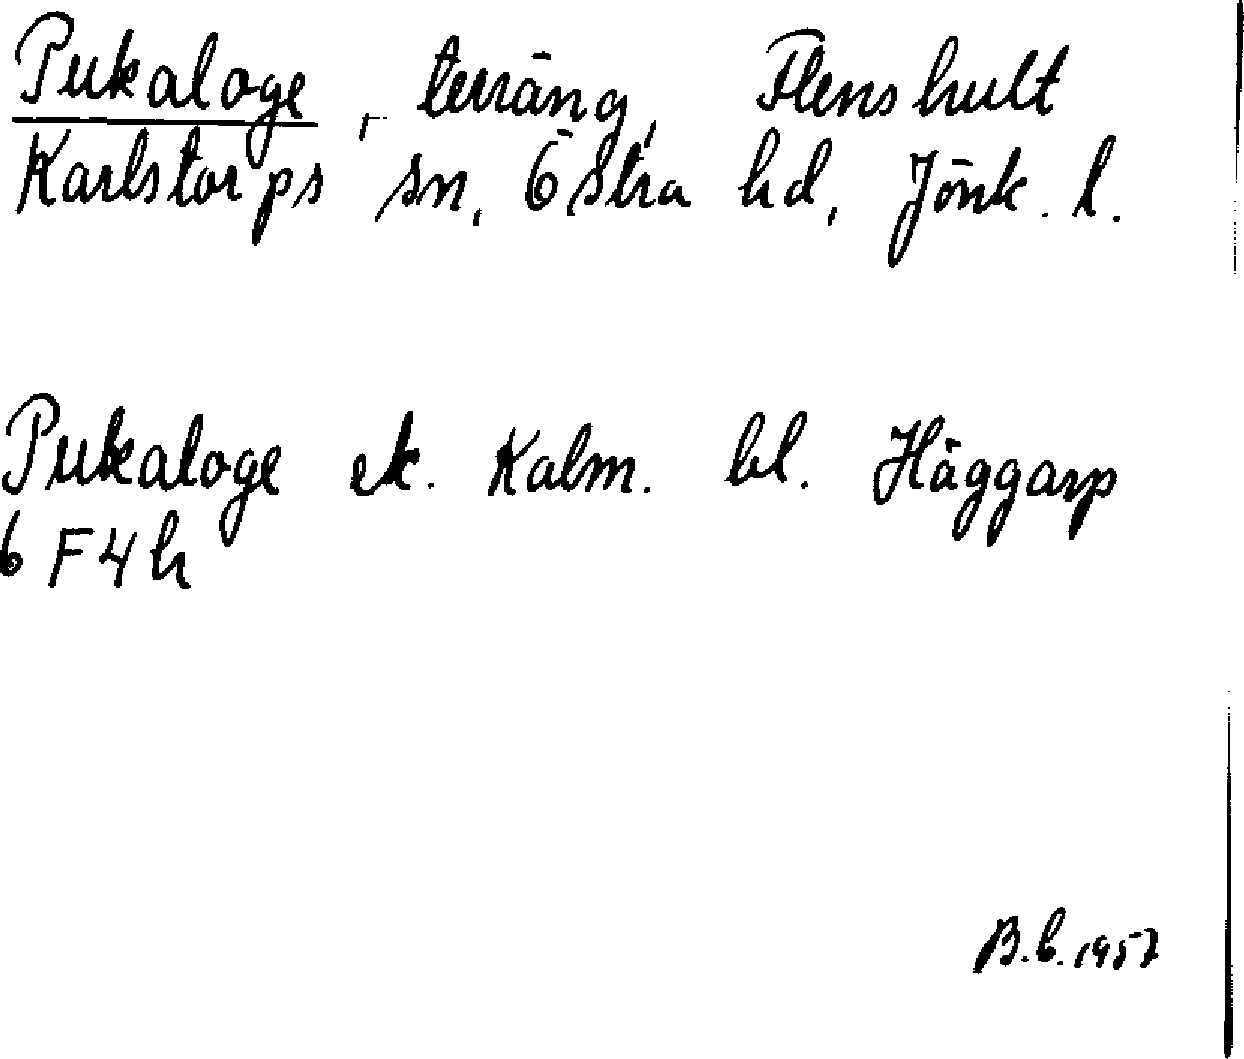 Pukaloge, terräng, Flenshult
Karlstorps sn, Östra hd, Jönk. l.
Pukaloge ek. Kalm. bl. Häggarp
6 F 4 h
B.b. 1957